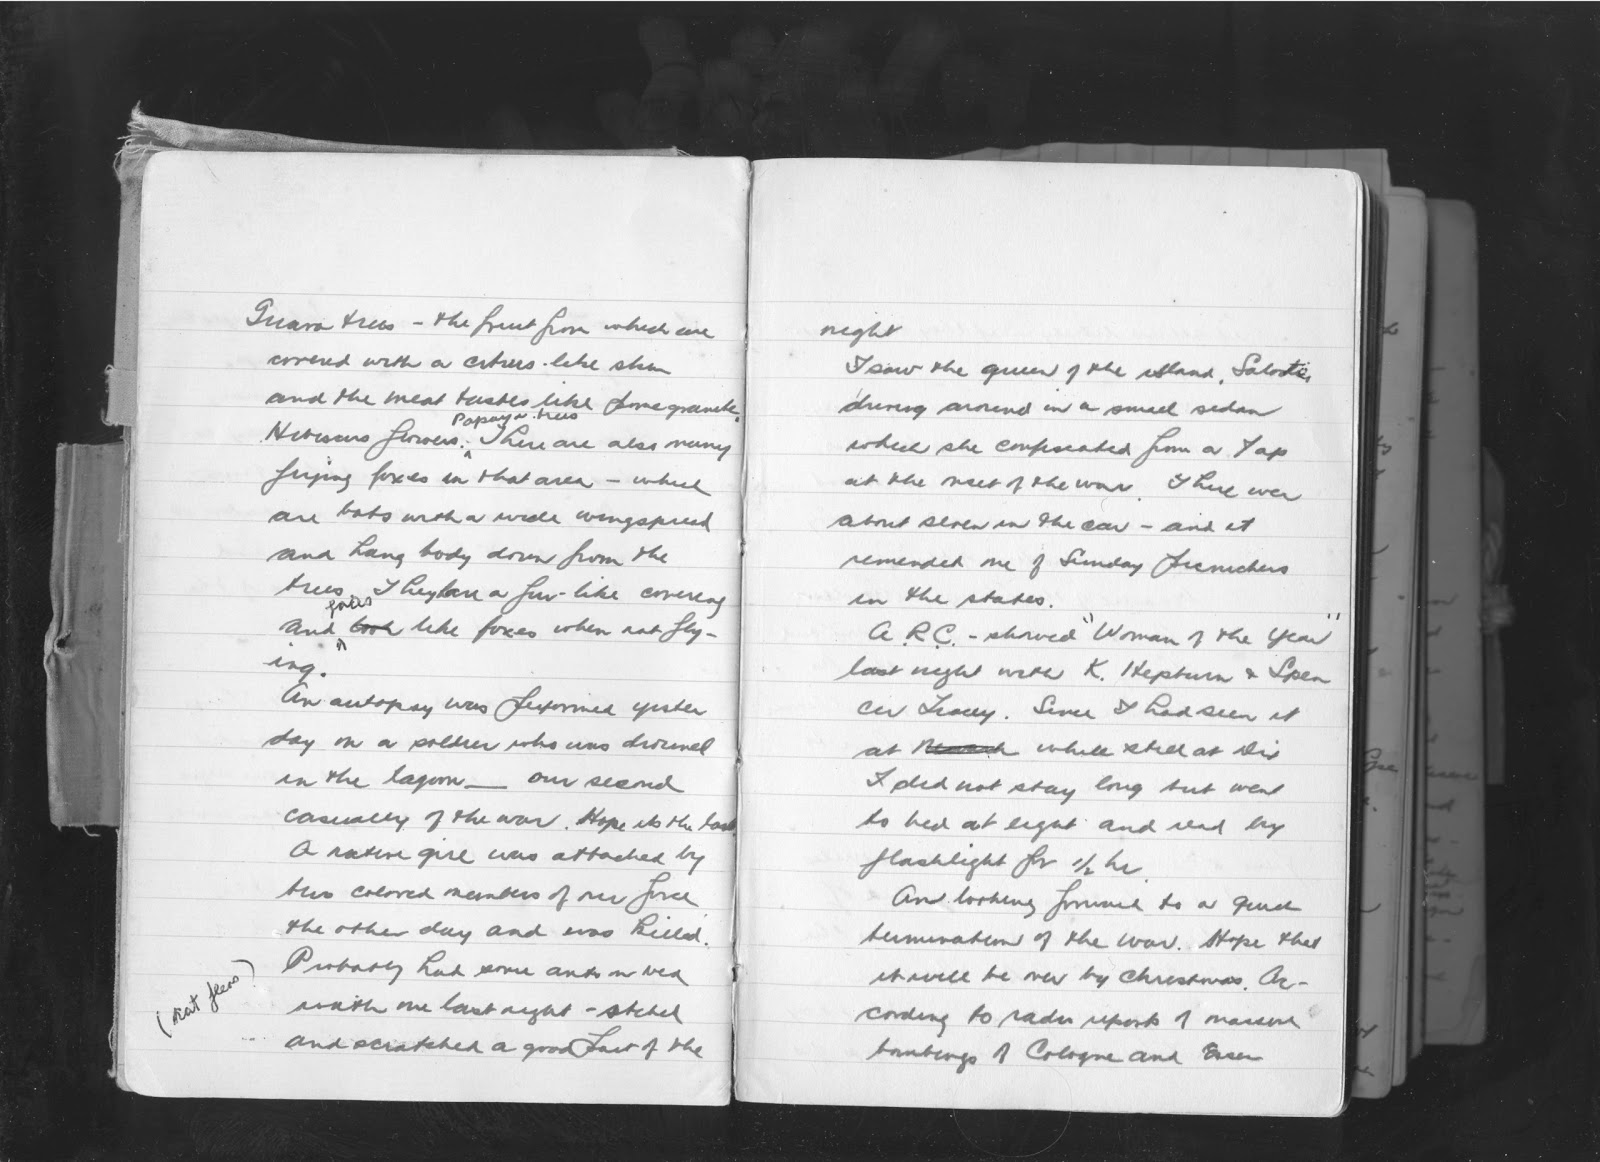 Guava trees - the fruit from which are
covered with a citrus-like skin
and the meat tastes like pomegranate.
Papaya trees
Hibiscus flowers. There are also many
flying foxes in that area - which
are bats with a wide wingspread
and hang body down from the
trees. They have a fur-like covering
faces
and look like foxes when not fly-
ing.
An autopsy was performed yester
day on a soldier who was drowned
in the lagoon — our second
casualty of the war. Hope its the last.
A native girl was attacked by
two colored members of our force
the other day and was killed.
Probably had some ants in bed
with me last night - itched
and scratched a good part of the
(Rat fleas)
night
I saw the queen of the island,
driving around in a small sedan
which she confiscated from a Jap
at the onset of the war. There were
about seven in the car - and it
reminded me of Sunday picnickers
in the states.
A.R.C. - showed "Woman of the Year"
last night with K. Hepburn & Spen
cer Tracy. Since I had seen it
at while still at Dix
I did not stay long but went
to bed at eight and read by
flashlight for 1/2 hr.
Am looking forward to a quick
termination of the war. Hope that
it will be over by Christmas. Ac-
cording to radio reports of massive
bombings of Cologne and Essen